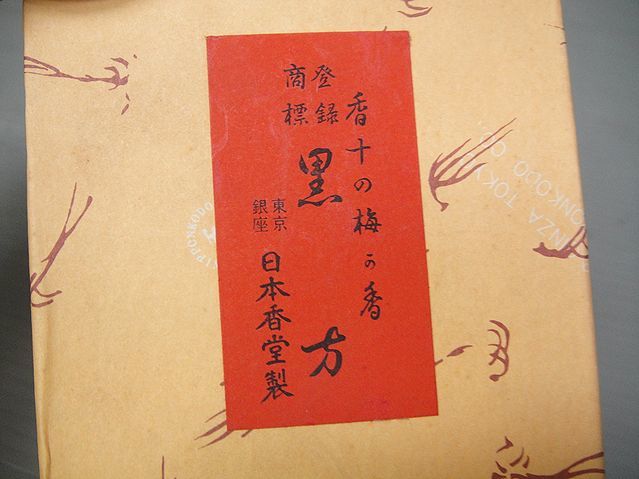 香十の梅の香
登録
商標
黒方
東京
銀座
日本香堂製
NIPPONKODO
GINZA TOKYO